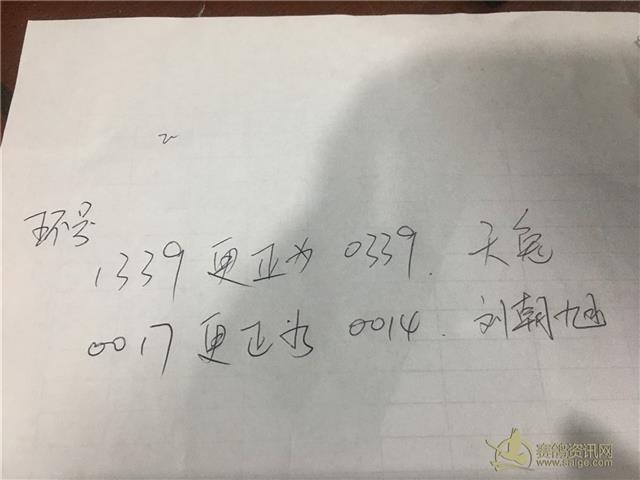 环号
1339更正为 0339. 天兔
0017更正为 0014. 刘朝旭
赛鸽资讯网
www.saige.com